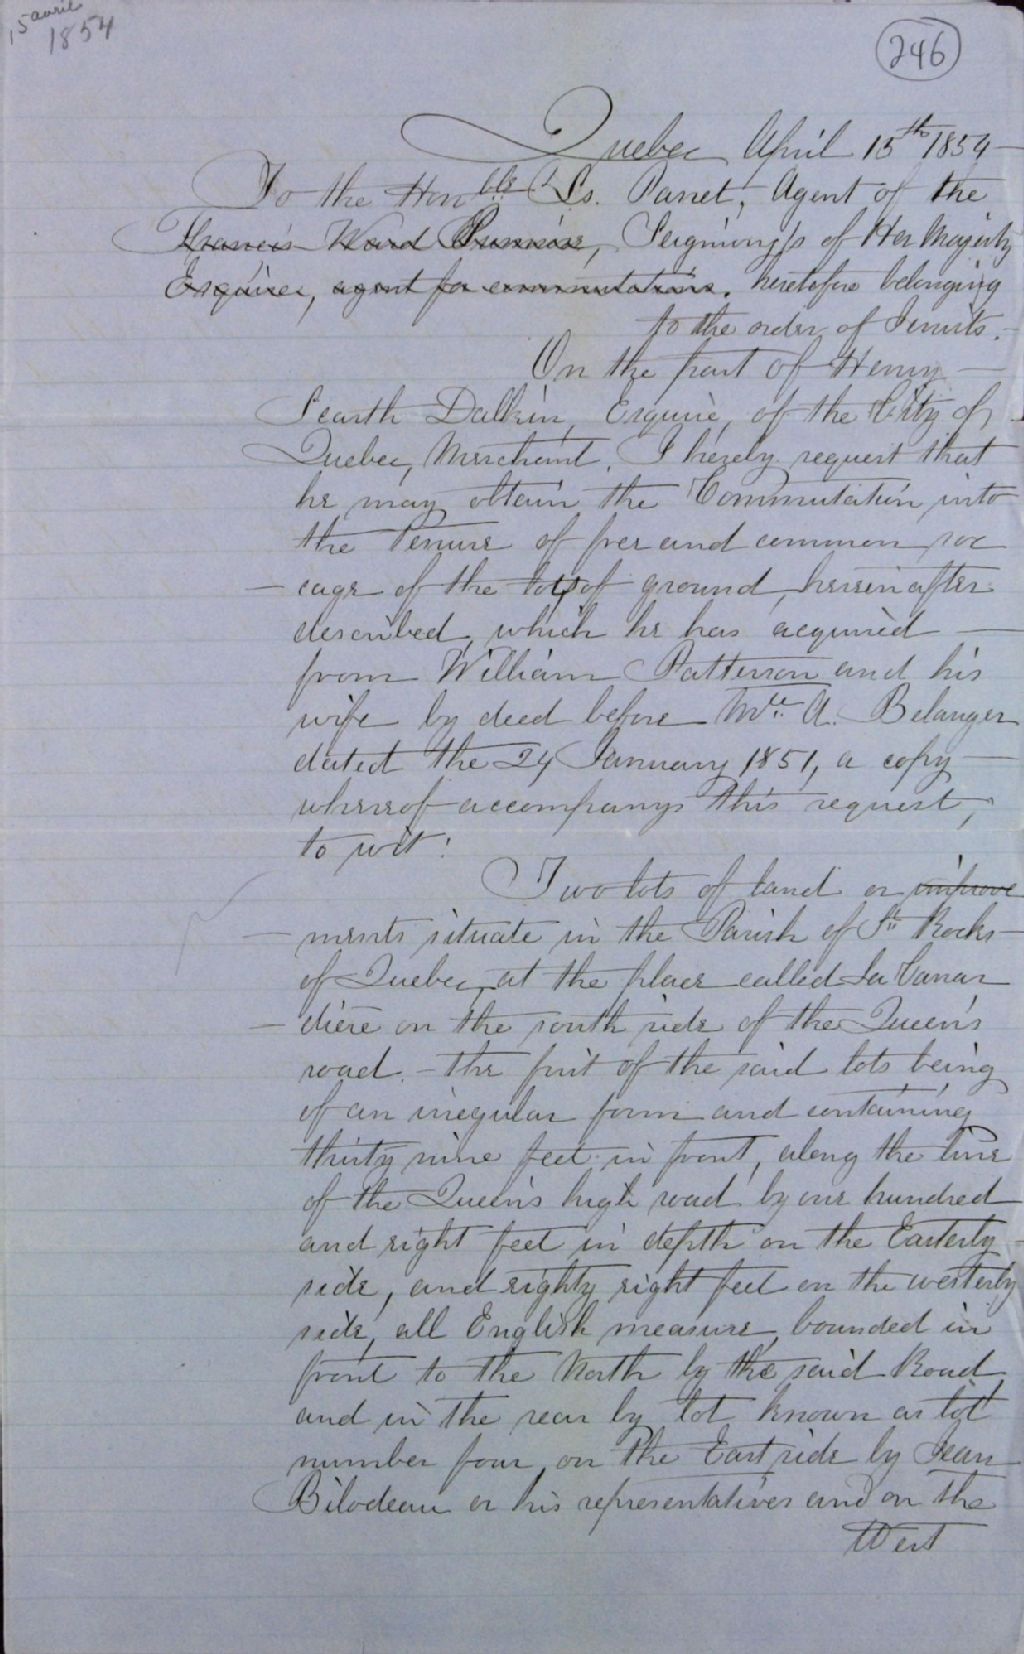 15 avril
1854
246
Quebec April 15th 1854
To the Honble Ls. Panet, Agent of the
Francis Ward Primrose, Seigniories of Her Majesty
Esquire, agent for commutation. heretofore belonging
to the order of Jesuits.
On the part of Henry
Scarth Dalkin, Esquire, of the City of
Quebec, Merchant, I hereby request that
he may obtain the Commutation into
the Tenure of free and common soc
- cage of the lots of ground, hereinafter
described, which he has acquired
from William Patterson and his
wife by deed before Mtre A. Belanger
dated the 24 January 1851, a copy
whereof accompanys this request,
to wit:
Two lots of land or improve
- ments situate in the Parish of St Rochs
of Quebec, at the place called La Canar
- dière on the south side of the Queen's
road. - the first of the said lots being
of an irregular form and containing
thirty nine feet in front, along the line
of the Queen's high road by one hundred
and eight feet in depth on the Easterly
side, and eighty eight feet on the westerly
side, all English measure, bounded in
front to the North by the said Road
and in the rear by lot known as lot
number four, on the East side by Jean
Bilodeau or his representatives and on the
West